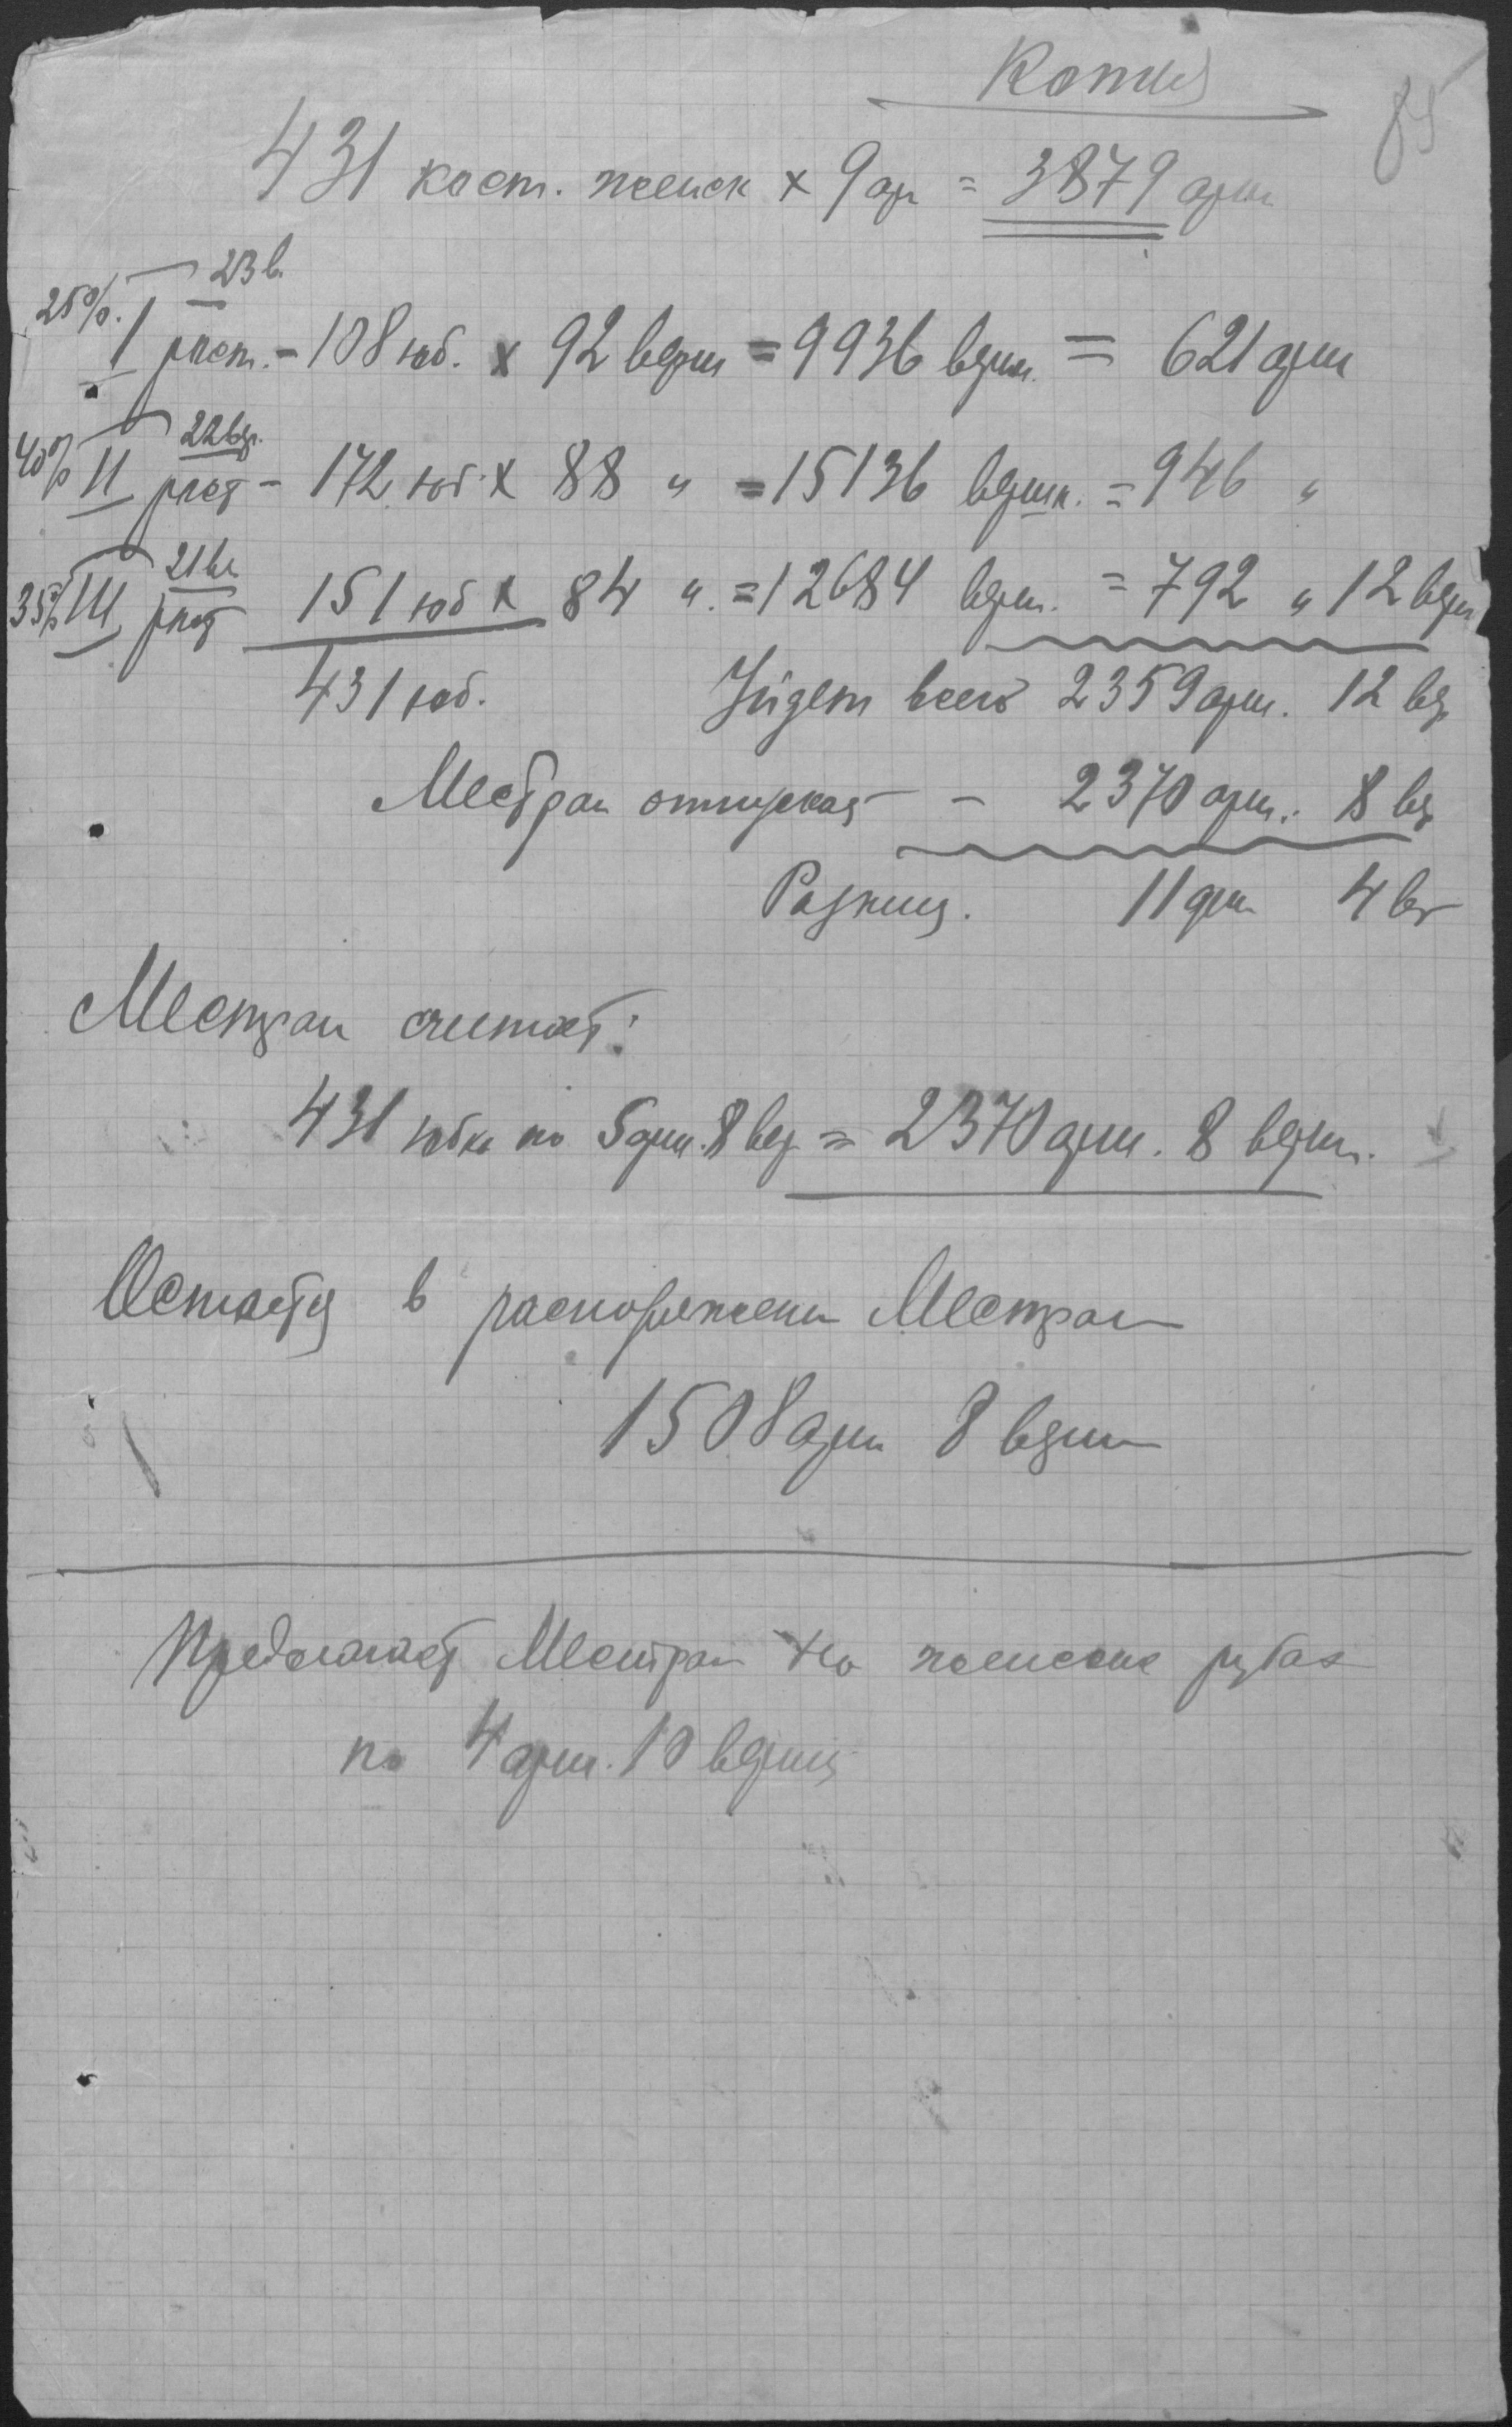 Копия
85
431 кост. женск x 9 ар = 3879 арш
25%. 23 в.
I рост. - 108 юб. x 92 верш = 9936 верш. = 621 арш
40% 22 вер.
II рост - 172 юб. x 88 " = 15136 вершк. = 946 "
35% 21 ве.
III рост 151 юб x 84 ". = 12684 верш. = 792 " 12 верш
431 юб. Уйдет всего 2359 арш. 12 вер
Местран отпускает - 2370 арш. 8 вер
Разница. 11 арш 4 вер
Местран считает:
431 юбки по 5 арш. 8 вер = 2370 арш. 8 верш.
Остается в распоряжении Местран
1508 арш 8 верш
Предлагает Местран на женские рубах
по 4 арш. 10 вершк